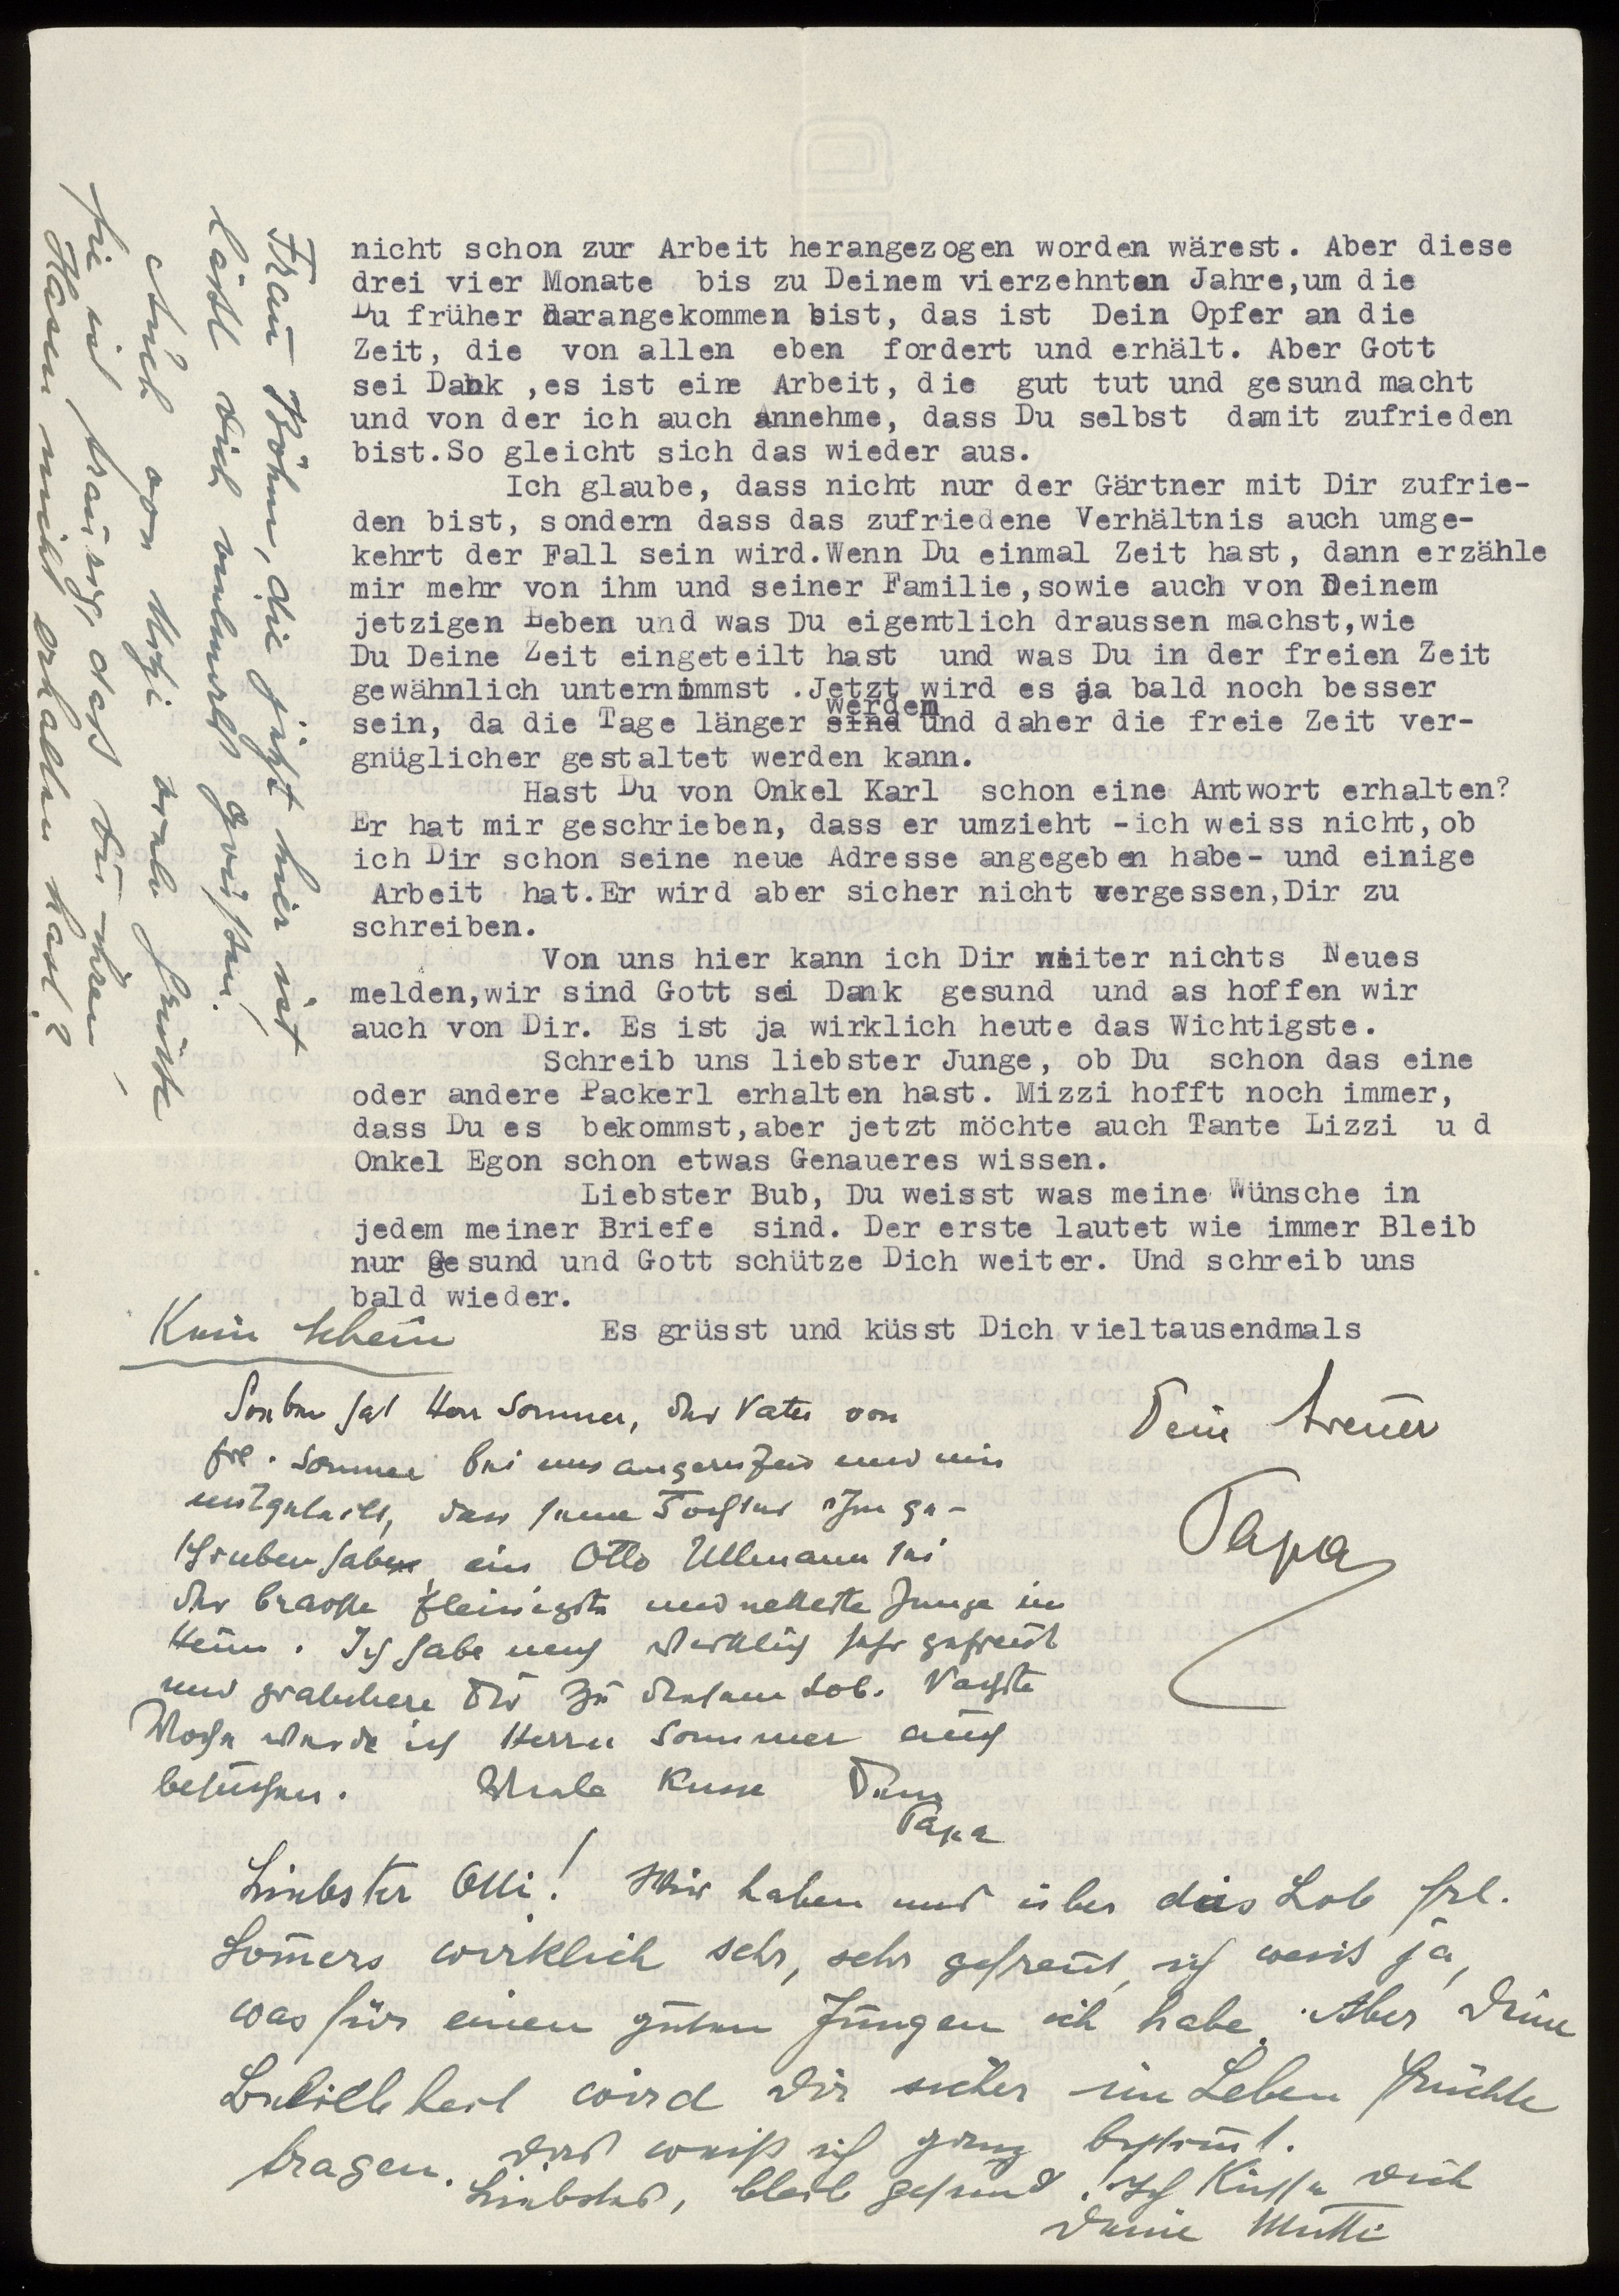 nicht schon zur Arbeit herangezogen worden wärest. Aber diese
drei vier Monate bis zu Deinem vierzehnten Jahre,um die
Du früher darangekommen bist, das ist Dein Opfer an die
Zeit, die von allen eben fordert und erhält. Aber Gott
sei Dank ,es ist eine Arbeit, die gut tut und gesund macht
und von der ich auch annehme, dass Du selbst damit zufrieden
bist.So gleicht sich das wieder aus.
Ich glaube, dass nicht nur der Gärtner mit Dir zufrie-
den bist, sondern dass das zufriedene Verhältnis auch umge-
kehrt der Fall sein wird.Wenn Du einmal Zeit hast, dann erzähle
mir mehr von ihm und seiner Familie,sowie auch von Deinem
jetzigen Leben und was Du eigentlich draussen machst,wie
Du Deine Zeit eingeteilt hast und was Du in der freien Zeit
gewähnlich unternimmst .Jetzt wird es ja bald noch besser
sein, da die Tage länger sind werden und daher die freie Zeit ver-
gnüglicher gestaltet werden kann.
Hast Du von Onkel Karl schon eine Antwort erhalten?
Er hat mir geschrieben, dass er umzieht -ich weiss nicht,ob
ich Dir schon seine neue Adresse angegeben habe- und einige
Arbeit hat.Er wird aber sicher nicht vergessen,Dir zu
schreiben.
Von uns hier kann ich Dir weiter nichts Neues
melden,wir sind Gott sei Dank gesund und as hoffen wir
auch von Dir. Es ist ja wirklich heute das Wichtigste.
Schreib uns liebster Junge, ob Du schon das eine
oder andere Packerl erhalten hast. Mizzi hofft noch immer,
dass Du es bekommst,aber jetzt möchte auch Tante Lizzi u d
Onkel Egon schon etwas Genaueres wissen.
Liebster Bub, Du weisst was meine Wünsche in
jedem meiner Briefe sind. Der erste lautet wie immer Bleib
nur gesund und Gott schütze Dich weiter. Und schreib uns
bald wieder.
Es grüsst und küsst Dich vieltausendmals
Dein treuer
Papa
Soeben hat Herr Sommer, der Vater von
Frl. Sommer bei uns angerufen und mir
mitgeteilt, dass seine Tochter ihm ge-
schrieben habe, ein Otto Ullmann sei
der bravste fleissigste und netteste Junge im
Heim. Ich habe mich wirklich sehr gefreut
und gratuliere Dir zu diesem Lob. Nächste
Woche werde ich Herrn Sommer auch
besuchen. Viele Küsse Dein
Papa
Liebster Otti! Wir haben uns über das Lob Frl.
Somers wirklich sehr, sehr gefreut, ich weiß ja,
was für einen guten Jungen ich habe. Aber Deine
wird Dir sicher im Leben Früchte
tragen. Das weiß ich ganz bestimt.
Liebster, bleib gesund! Ich küsse Dich
Deine Mutti
Frau Böhm, die jetzt hier ist,
läßt Dich vielmals grüßen.
Auch von viele Grüße
sie ist traurig, dass Du ihren
Hasen nicht erhalten hast?